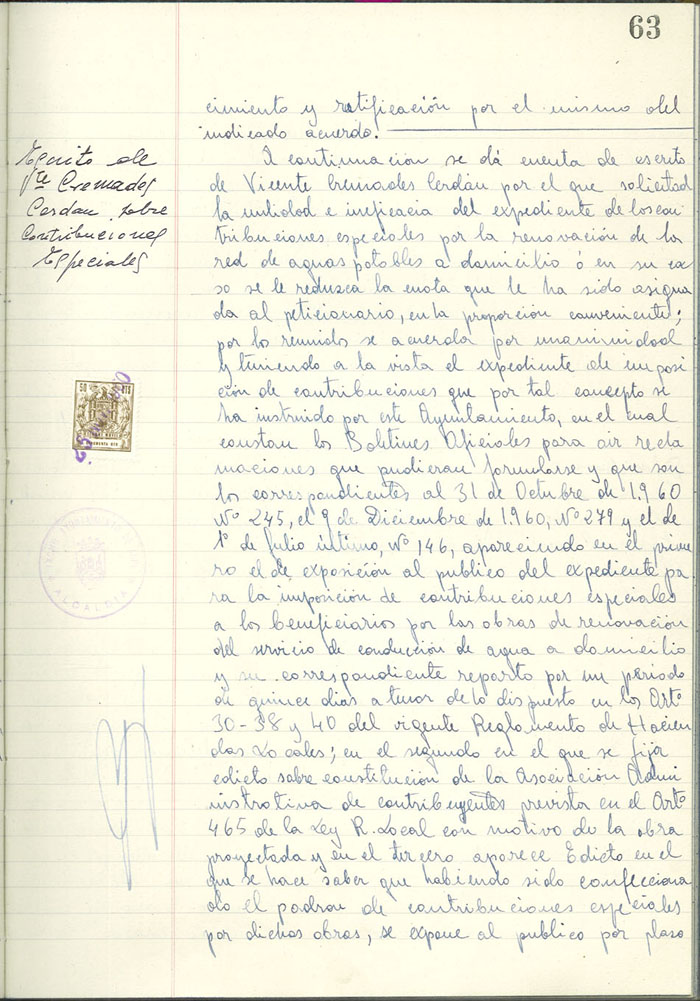 63
cimiento y ratificación por el mismo del
indicado acuerdo.
Escrito de
Vte Cremades
Cerdan sobre
Contribuciones
Especiales
A continuacion se dá cuenta de escrito
de Vicente Cremades Cerdán por el que solicita
la nulidad e ineficacia del expediente de las con
tribuciones especiales por la renovación de la
red de aguas potables a domicilio ó en su ca
so se le reduzca la cuota que le ha sido asigna
da al peticionario, en la proporción conveniente;
por los reunidos se acuerda por unanimidad
y teniendo a la vista el expediente de imposi
ción de contribuciones que por tal concepto se
ha instruido por este Ayuntamiento, en el cual
constan los Boletines Oficiales para oir recla
maciones que pudieran formularse y que son
los correspondientes al 31 de Octubre de 1.960
Nº 245, el 9 de Diciembre de 1.960, Nº 279 y el de
1º de Julio último, Nº 146, apareciendo en el prime
ro el de exposición al publico del expediente pa
ra la imposición de contribuciones especiales
a los beneficiarios por las obras de renovación
del servicio de conducción de agua a domicilio
y su correspondiente reparto por un periodo
de quince dias a tenor de lo dispuesto en los Artº
30-38 y 40 del vigente Reglamento de Hacien
das Locales; en el segundo en el que se fija
edicto sobre constitución de la Asociación Admi
nistrativa de contribuyentes prevista en el Artº
465 de la Ley R. Local con motivo de la obra
proyectada y en el tercero aparece Edicto en el
que se hace saber que habiendo sido confecciona
do el padron de contribuciones especiales
por dichas obras, se expone al publico por plazo
50 PTS
ALCALDIA